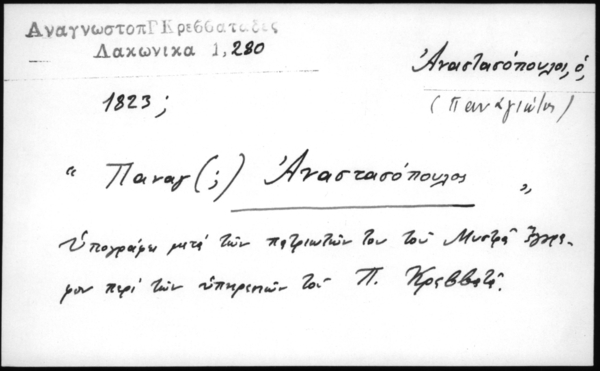 ΑναγνωστοπΓΚρεββαταδες
Λακωνικα 1, 280
Ἀναστασόπουλος, ὁ,
(Παναγιώτης)
1823;
“ Παναγ(;) Ἀναστασόπουλος „
Ὑπογράφει μετά τῶν πατριωτῶν του τοῦ Μυστρᾶ ἔγγρα-
φον περί τῶν ὑπηρεσιῶν τοῦ Π. Κρεββατᾶ.